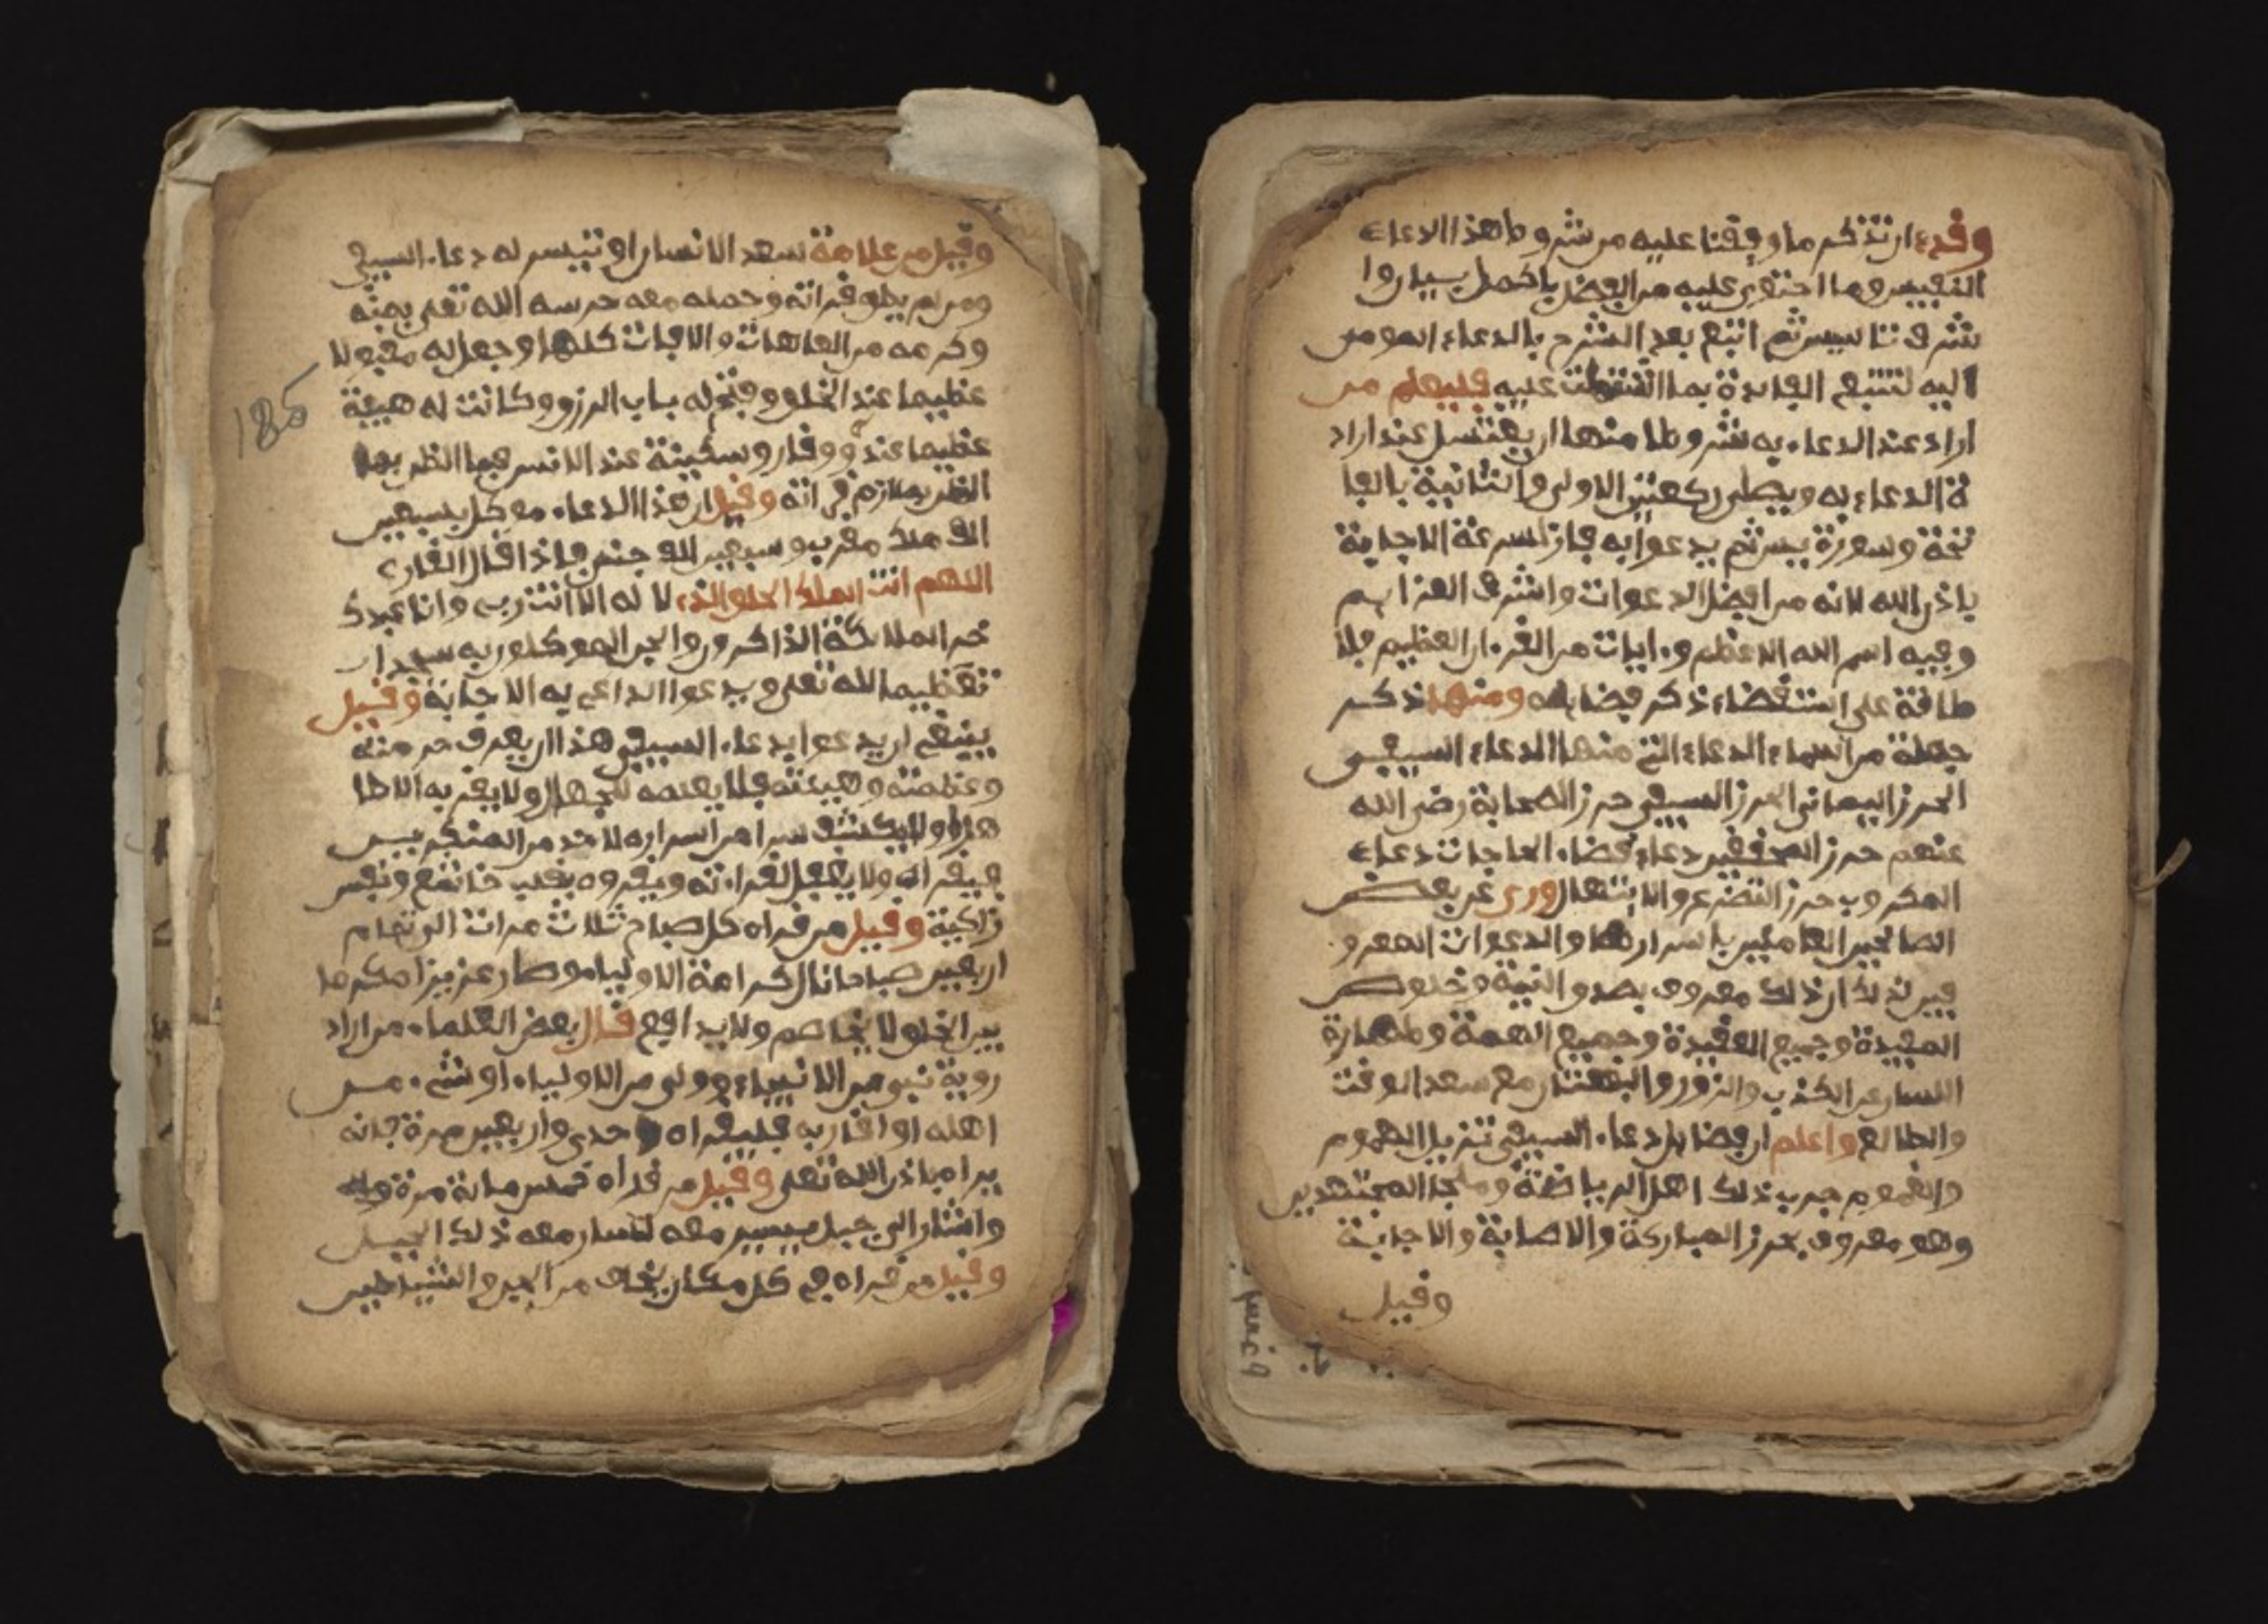 وقدء ان نذكر ما وقفنا عليه من شروط هذا الدعاء
النفيس وما احتوى عليه من الفضل باكمل بيان وا
شرف تاسيس ثم اتبع بعد الشرح بالدعاء المومى
اليه لتتبع الفايدة بما اشتملت عليه فليعلم من
اراد عند الدعاء به شروطا منها ان يغتسل عند اراد
ة الدعاء به ويصلى ركعتين الاولى والثانية بالفا
تحة وسورة يس ثم يدعوا به فان لسرعة الاجابة
باذن الله لانه من افضل الدعوات واشرف العزايم
وفيه اسم الله الاعظم وءايات من القرءان العظيم فلا
طاقة على استقضاء ذكر فضايله ومنها ذكر
جملة من اسماء الدعاء التى منها الدعاء السيفى
الحرز اليمانى الحرز السيفى حرز الصحابة رضى الله
عنهم حرز المحققين دعاء قضاء الحاجات دعاء
المكروب حرز التضرع والابتهال وروى عن بعض
الصالحين العاملين باسرارها والدعوات المعرو
فين لذلك ان ذلك معروف بصدق النية وخلوص
العقيدة وجميع الهمة وطهارة
اللسان عن الكذب والزور والبهتان مع سعد الوقت
والطالع واعلم ان فضايل دعاء السيفى تزيل الهموم
والغموم جرب ذلك اهل الرياضة وملجا المجتهدين
وهو معروف بحرز المباركة والاصابة والاجابة
وقيل
وقيل من علامة سعد الانسان او تيسر له دعاء السيفى
ومن لم يطق قراته وحمله معه حرسه الله تعلى بمنه
وكرمه من العاهات والافات كلها وجعل له مقبولا
عظيما عند الخلق وفتح له باب الرزق وكانت له هيبة
عظيما عنده ووقار وسكينة عند الانس فيما الظن بها
الظن بملازم قراته وقيل ان هذا الدعاء موكل بسبعين
الف ملك مقرب وسبعين الف جنى فاذا قال القارى
اللهم انت الملك الحق الذى لا له الا انت ربى وانا عبدك
خر الملائكة الذاكرون والجن الموكلون به سجدا
تعظيما لله تعلى ويدعوا الداعى به الاجابة وقيل
ينبغى ان يدعوا بدعاء السيفى هذا ان يعرف حرمته
وعظمته وهيبته فلا يعلمه للجهال ولا يقربه الا طا
هرا ولا يكشف سرا من اسراره لاحد من المنكرين
فيقراه ولا يغفل لقراءته ويقروه بقلب خاشع ونفس
زاكية وقيل من قراه كل صباح ثلاث مرات الى تمام
اربعين صباحا نال كرامة الاولياء وصار عزيزا مكرما
بين الخلق لا يخاصم ولا يدافع قال بعض العلماء من اراد
روية نبى من الانبياء وولى من الاولياء او شىء من
اهله او اقاربه فليقراه احدى واربعين مرة فانه
يراه باذن الله تعلى وقيل من قراه خمس مائة مرة
واشار الى جبل يسير معه لسار معه ذلك الجبل
وقيل من قراه فى كل مكان يخاف من الجن والشياطين
185